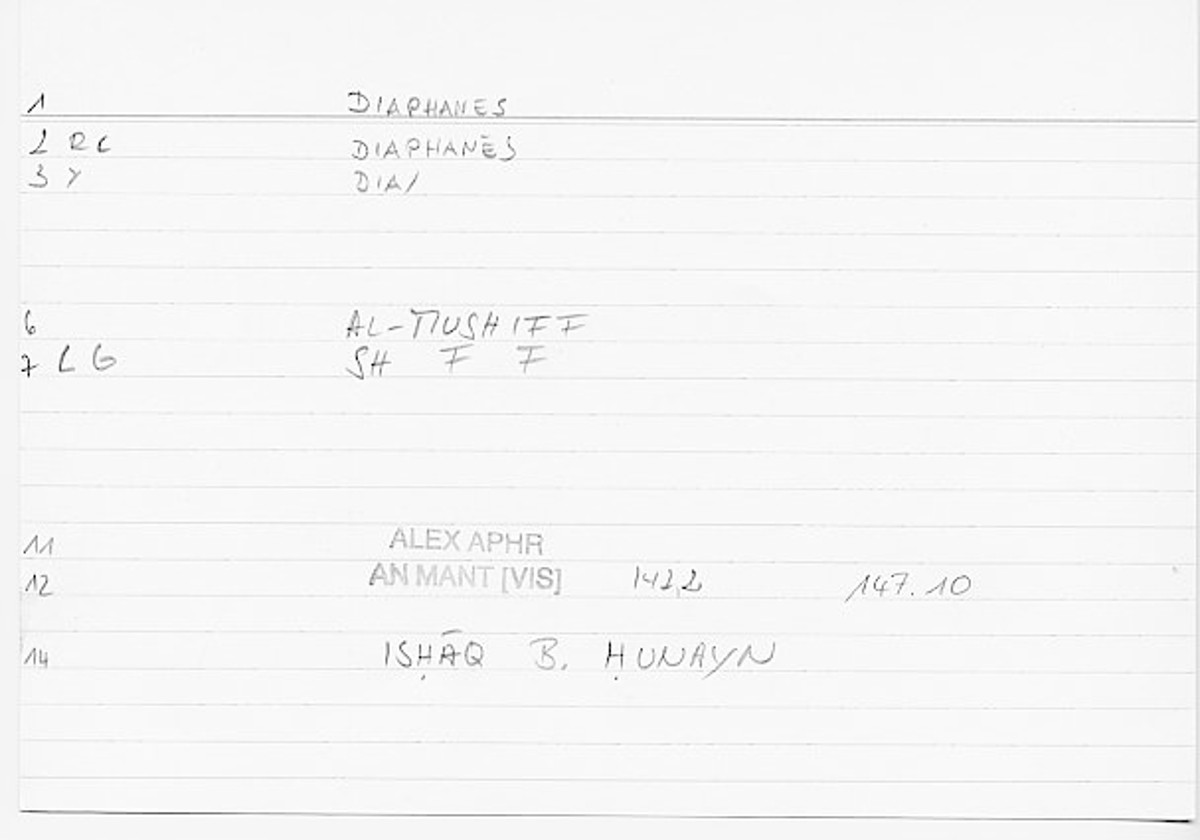 1 DIAPHANES
2 RC DIAPHANĒS
3 Y DIA/
6 AL-MUSHIFF
7 LG SH F F
11 ALEX APHR
12 AN MANT [VIS] 142,2 147.10
14 ISḤĀQ B. ḤUNAYN